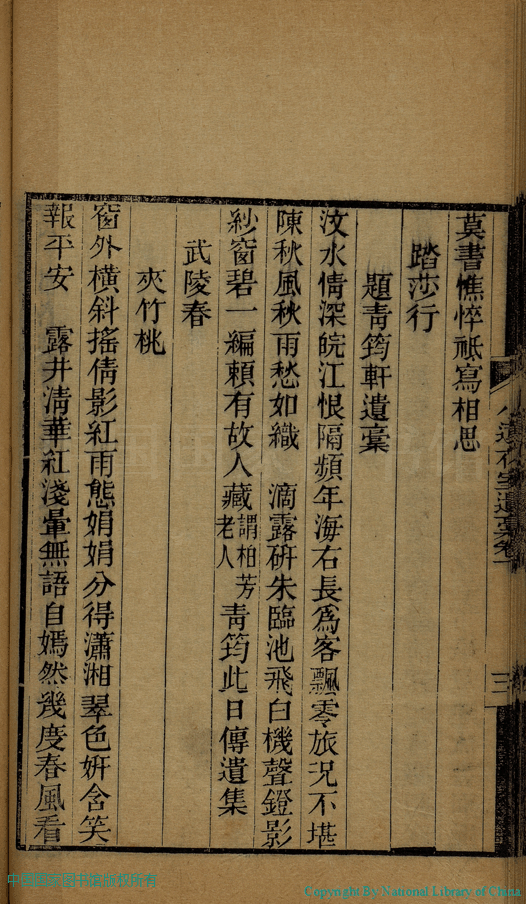 莫書憔悴祗寫相思
踏莎行
題青筠軒遺稾
汶水情深皖江恨隔頻年海右長爲客飄零旅况不堪
陳秋風秋雨愁如織　滴露硏朱臨池飛白機聲鐙影
紗窗碧一編頼有故人藏謂柏芳老人青筠此日傳遺集
武陵春
夾竹桃
窗外橫斜搖倩影紅雨態娟娟分得瀟湘翠色姸含笑
報平安　露井淸華紅淺暈無語自嫣然幾度春風看
三
Copyright By National Library of China